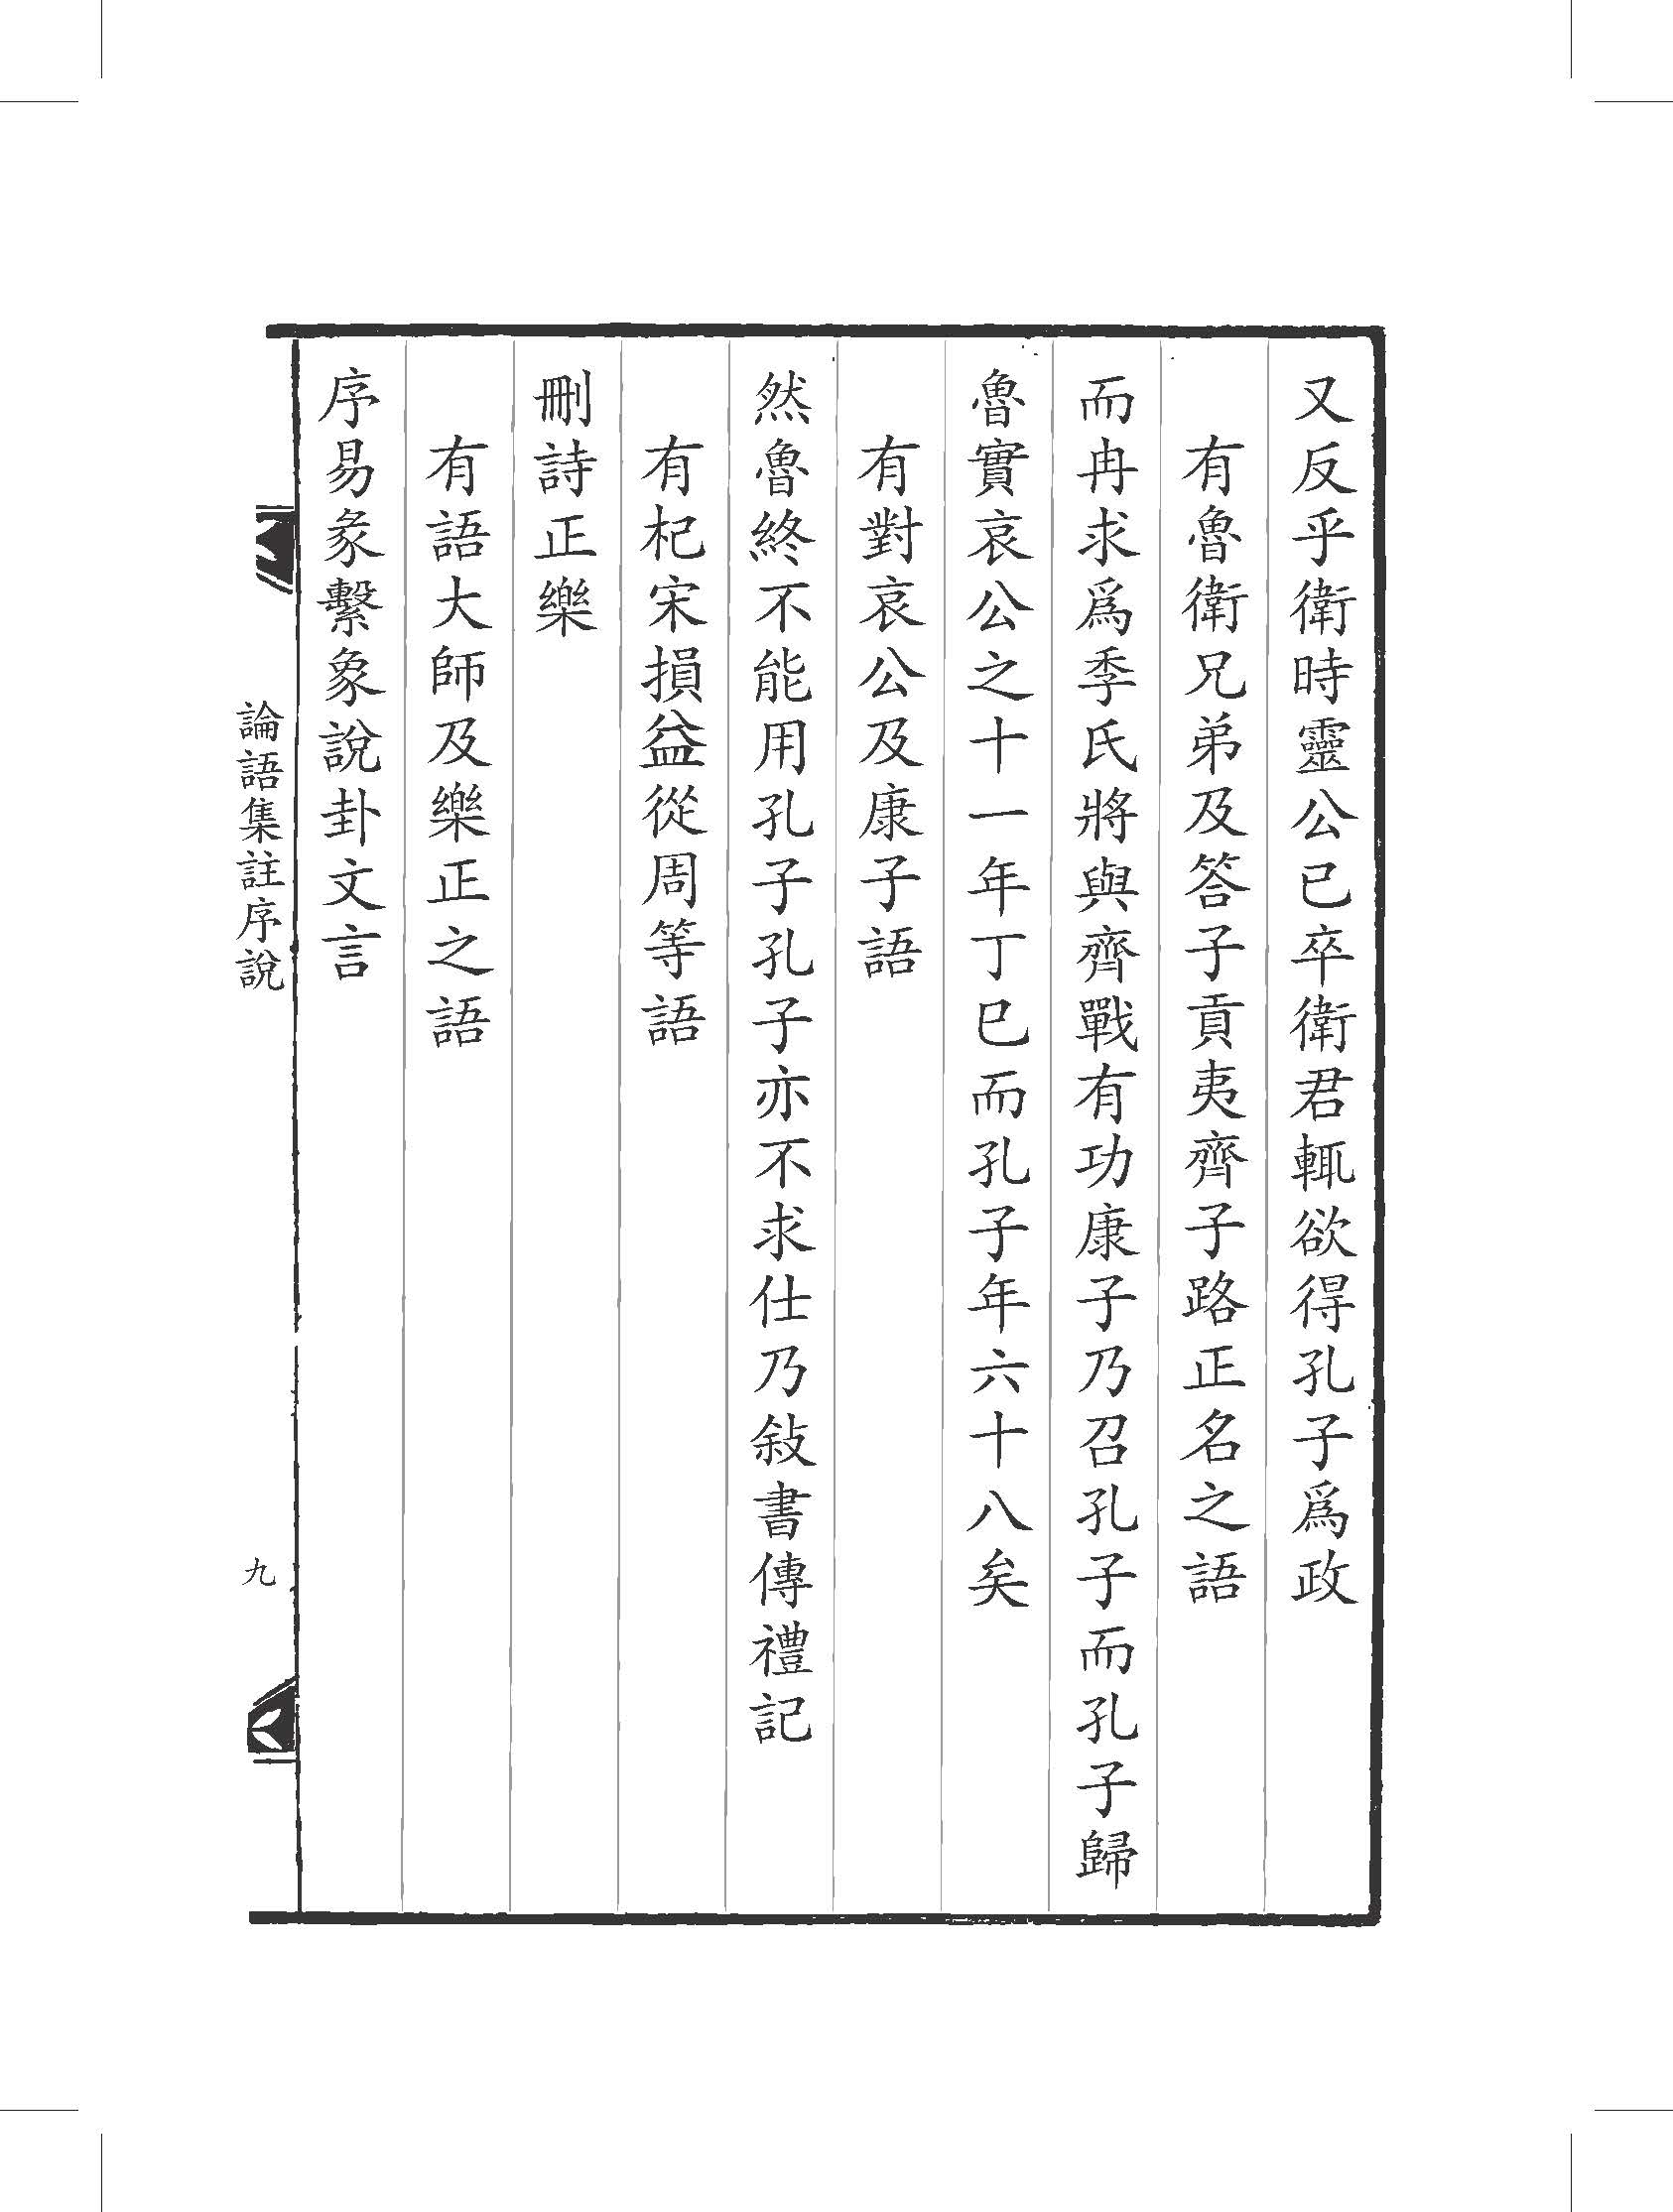 又反乎衛時靈公已卒衛君輒欲得孔子爲政
有魯衛兄弟及答子貢夷齊子路正名之語
而冉求爲季氏將與齊戰有功康子乃召孔子而孔子歸
魯實哀公之十一年丁巳而孔子年六十八矣
有對哀公及康子語
然魯終不能用孔子孔子亦不求仕乃敍書傳禮記
有杞宋損益從周等語
刪詩正樂
有語大師及樂正之語
序易彖繫象說卦文言
論語集註序說
九